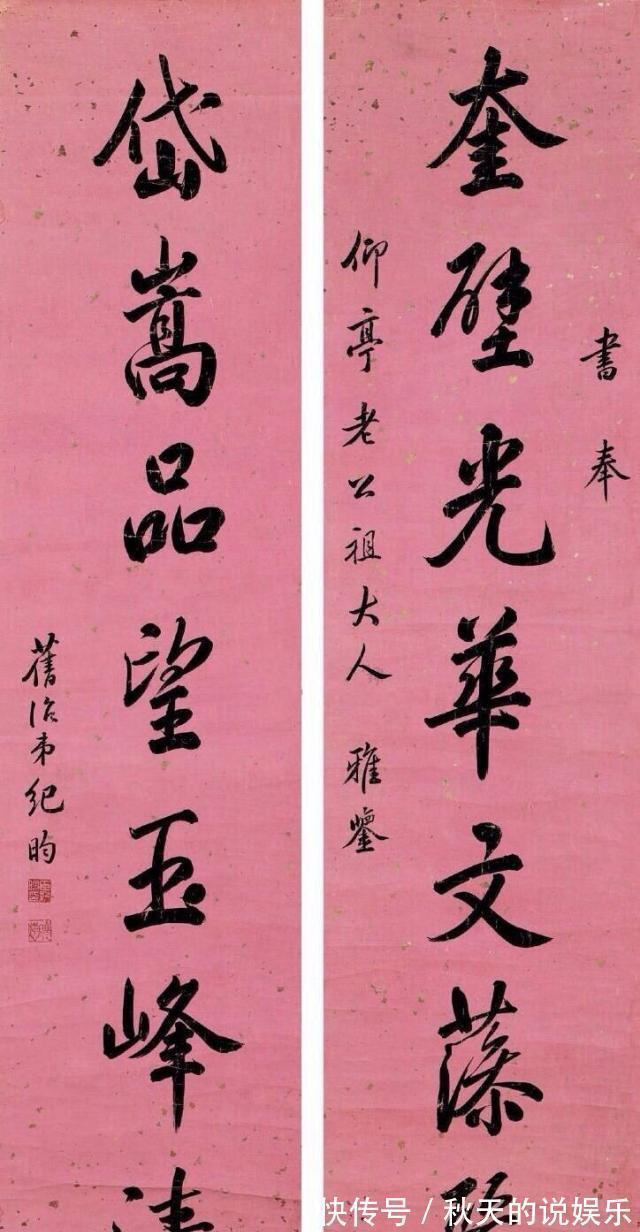 書奉
奎壁光華文藻
仰亭老公祖大人 雅鑒
岱嵩品望玉峰清
舊治弟紀昀
快传号 / 秋天的说娱乐